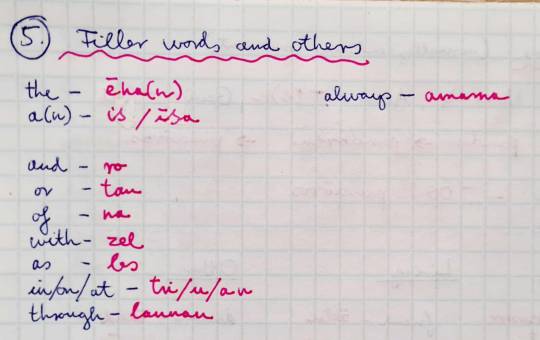 5. Filler words and others
the - ēha(n) always - amama
a(n) - is / īsa
and - ro
or - tau
of - na
with - zel
as - les
in/on/at - tri/u/an
through - launau